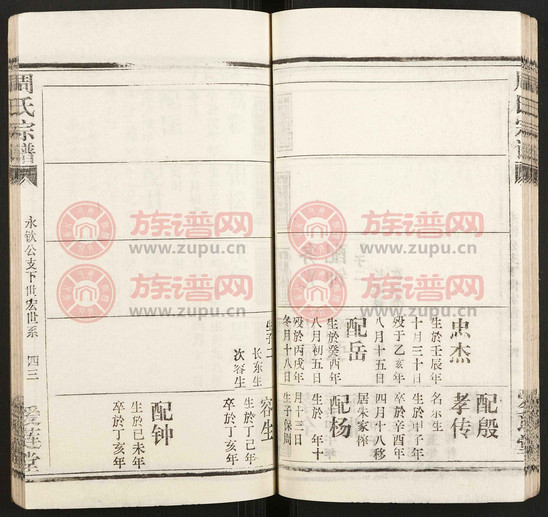 周氏宗譜
忠杰
生於壬辰年
十月三十日
殁于乙亥年
八月十五日
配岳
生於癸酉年
八月初五日
殁於丙戌年
冬月十八日
生子二
长东生
次容生
配殷
孝传
名东生
生於甲子年
卒於辛酉年
四月十八移
居朱家
配杨
生於 年十
月十三日
生子保周
容生
生於丁己年
卒於丁亥年
配钟
生於已未年
卒於丁亥年
永钦公支下世宏世系
四三
爱莲堂
族谱网
www.zupu.cn
族谱网
www.zupu.cn
族谱网
www.zupu.cn
族谱网
www.zupu.cn